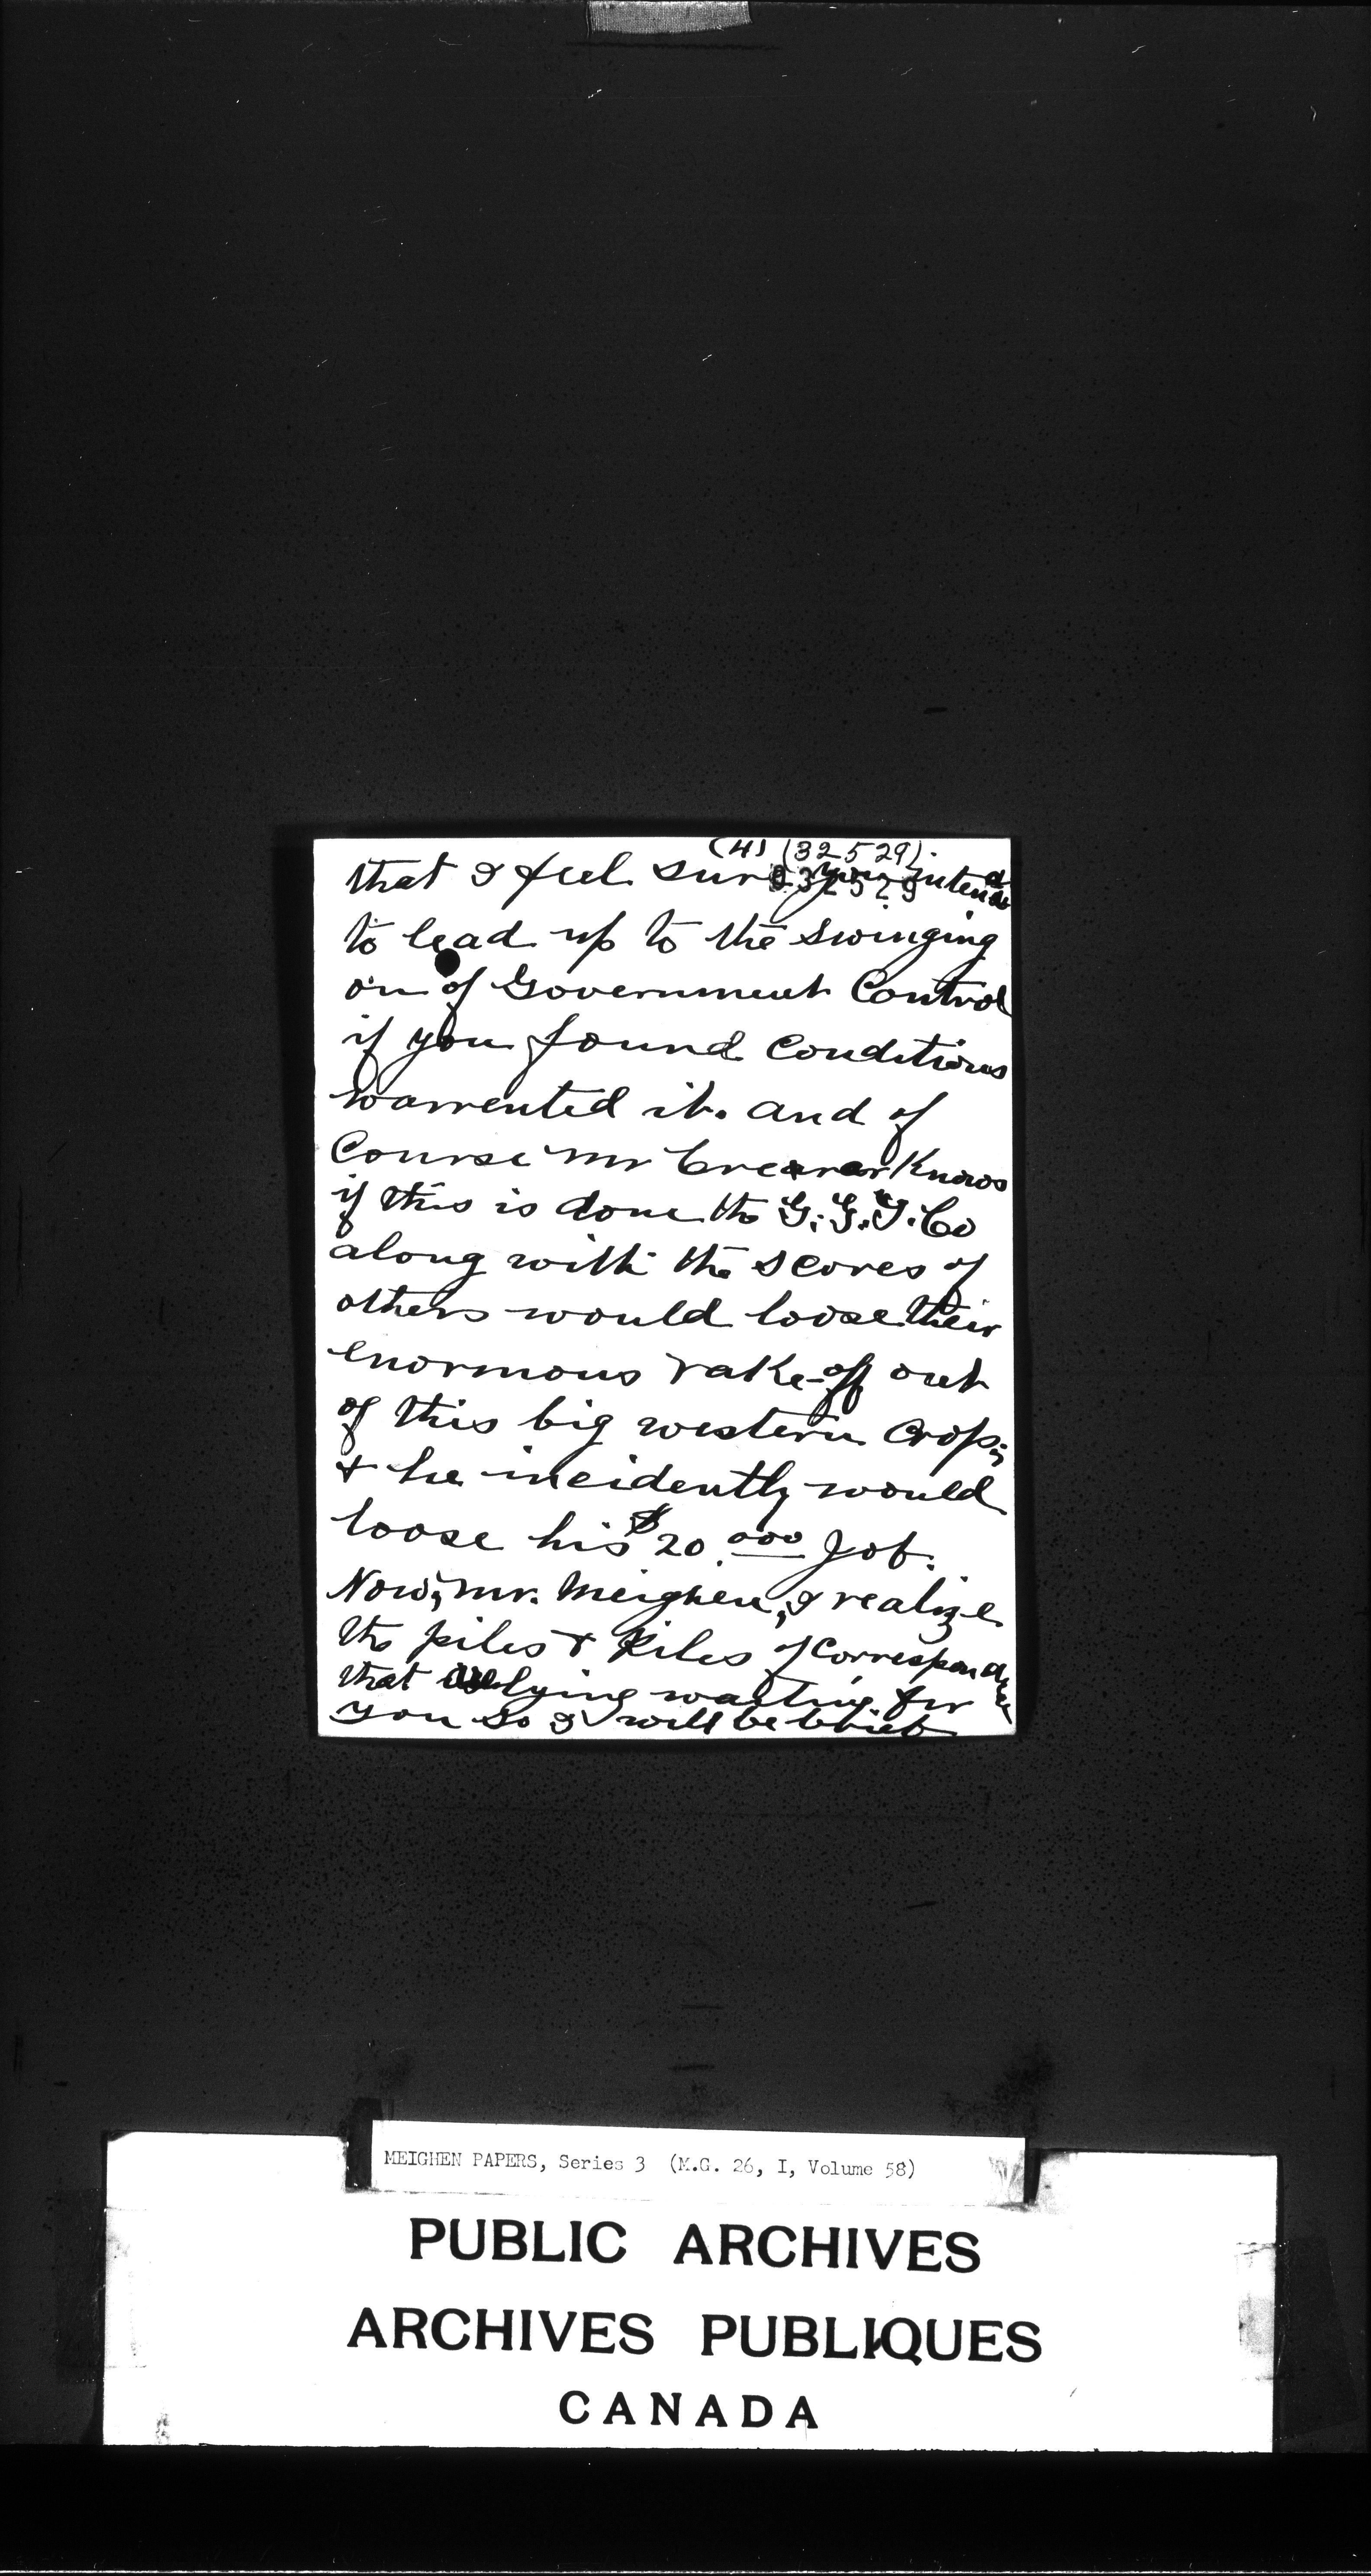 (4) (32529).
032529
that I feel sure you intend
to lead up to the swinging
on of Government Control
if you found Conditions
warrented it. and of
Course Mr Crearar Knows
if this is done the G. G. G. Co
along with the scores of
others would loose their
enormous rake-off out
of this big western crop;
& he incidently would
loose his $20.000 Job.
Now, Mr. Meighen, I realize
the piles & Piles of Correspondence
that are lying waiting for
you so I will be brief
MEIGHEN PAPERS, Series 3 (M.G. 26, I, Volume 58)
PUBLIC ARCHIVES
ARCHIVES PUBLIQUES
CANADA